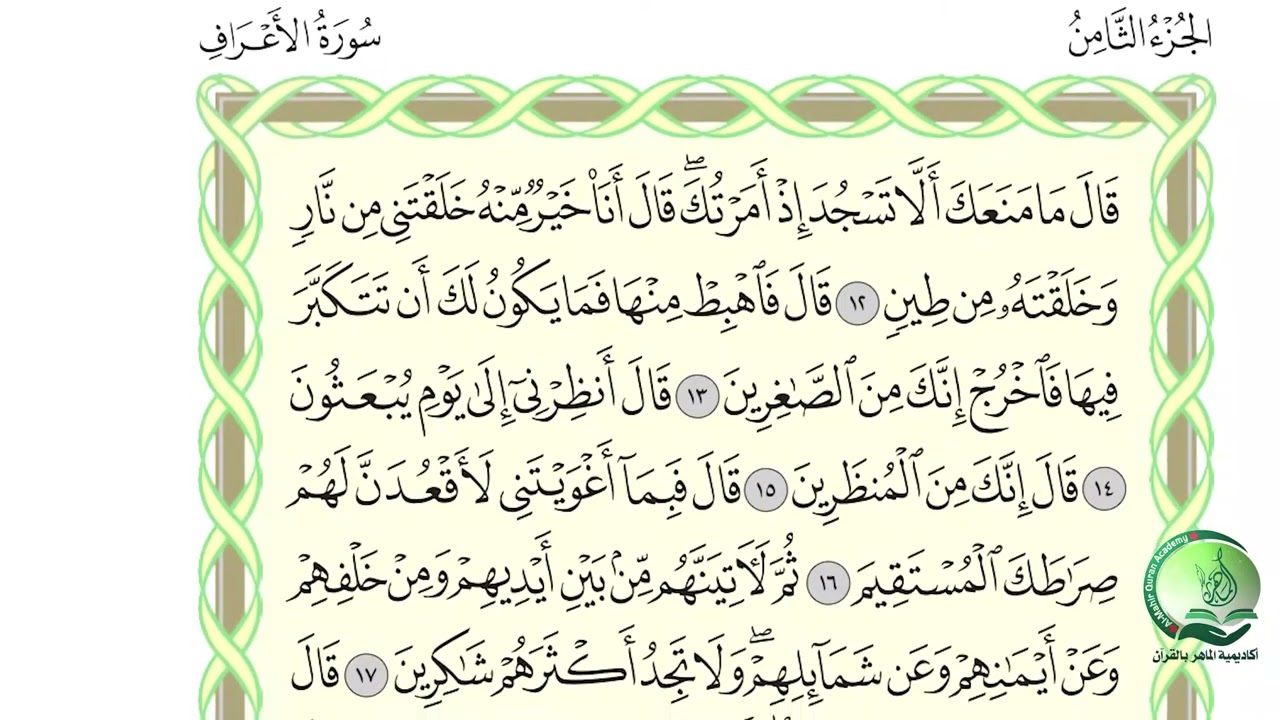 الجُزْءُ الثَّامِنُ
سُورَةُ الأَعْرَافِ
قَالَ مَا مَنَعَكَ أَلَّا تَسْجُدَ إِذْ أَمَرْتُكَۖ قَالَ أَنَا۠ خَيْرٌ مِّنْهُ خَلَقْتَنِي مِن نَّارٍ
وَخَلَقْتَهُۥ مِن طِينٍ ١٢ قَالَ فَٱهْبِطْ مِنْهَا فَمَا يَكُونُ لَكَ أَن تَتَكَبَّرَ
فِيهَا فَٱخْرُجْ إِنَّكَ مِنَ ٱلصَّـٰغِرِينَ ١٣ قَالَ أَنظِرْنِيٓ إِلَىٰ يَوْمِ يُبْعَثُونَ
١٤ قَالَ إِنَّكَ مِنَ ٱلْمُنظَرِينَ ١٥ قَالَ فَبِمَآ أَغْوَيْتَنِي لَأَقْعُدَنَّ لَهُمْ
صِرَٰطَكَ ٱلْمُسْتَقِيمَ ١٦ ثُمَّ لَأٓتِيَنَّهُم مِّنۢ بَيْنِ أَيْدِيهِمْ وَمِنْ خَلْفِهِمْ
وَعَنْ أَيْمَـٰنِهِمْ وَعَن شَمَآئِلِهِمْۖ وَلَا تَجِدُ أَكْثَرَهُمْ شَـٰكِرِينَ ١٧ قَالَ
Al-Mahir Quran Academy
الماهر
أكاديمية الماهر بالقرآن